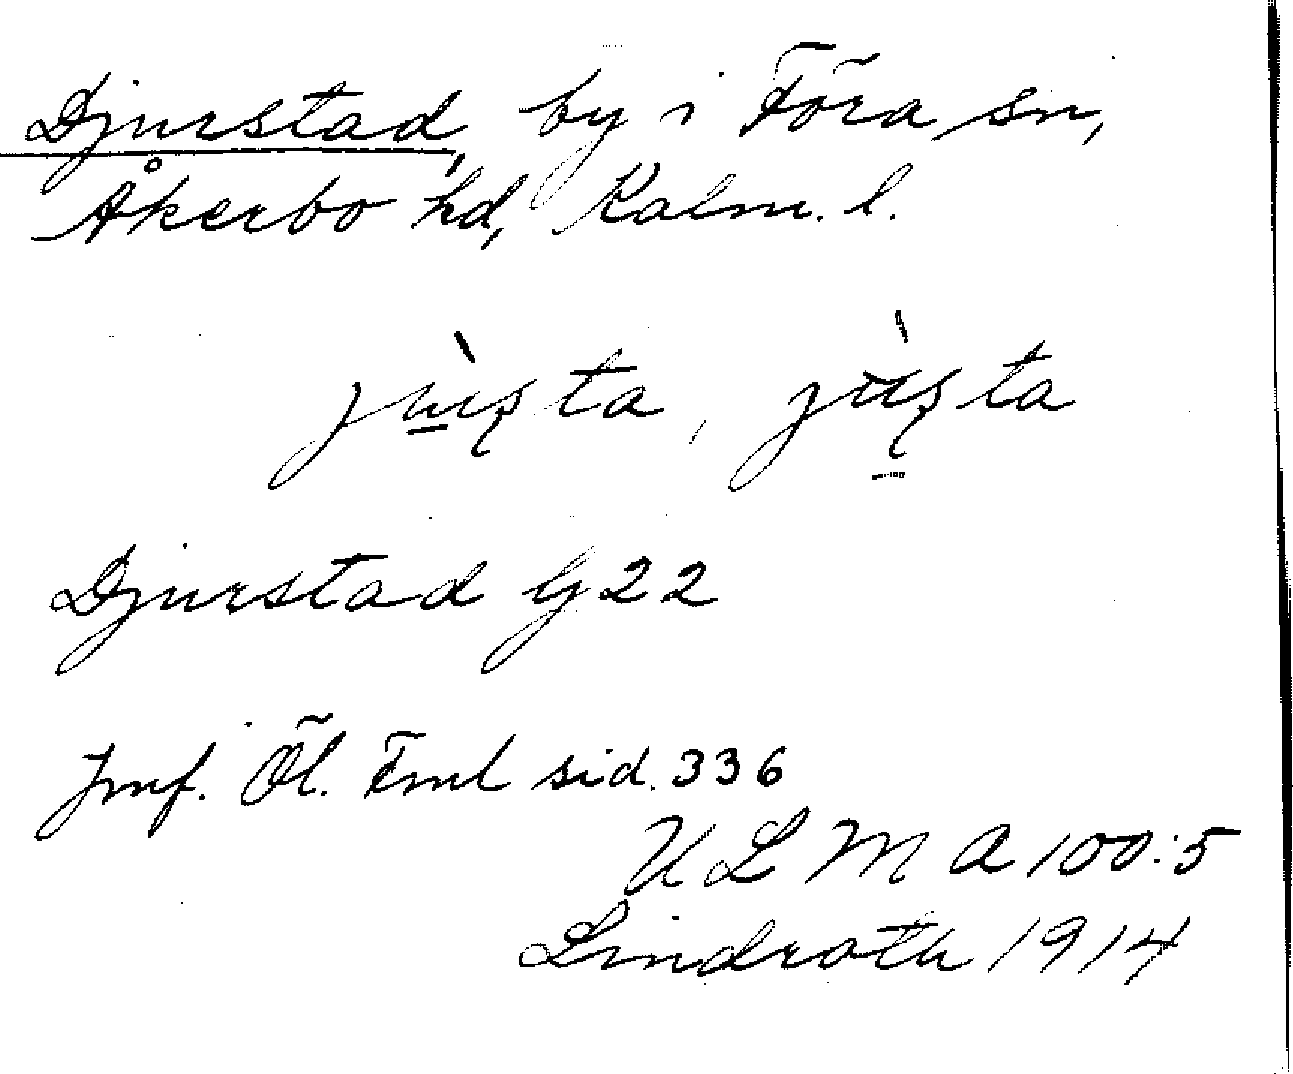 Djurstad, by i Föra sn,
Åkerbo hd, Kalm. l.
jùʂta, jùʂta
Djurstad G 22
Jmf. Öl. Fml sid. 336
ULMA 100:5
Lindroth 1914